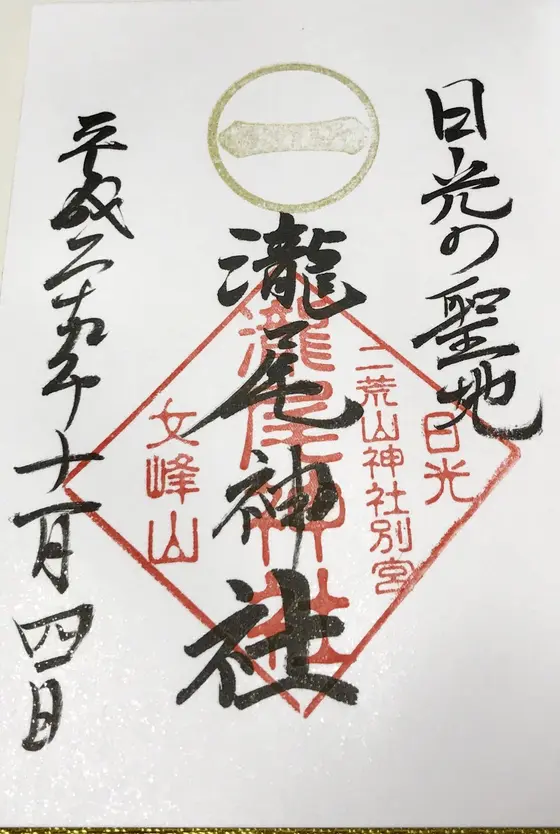 日光の聖地
一
瀧尾神社
平成二十九年十一月四日
日光
二荒山神社別宮
瀧尾神社
女峰山